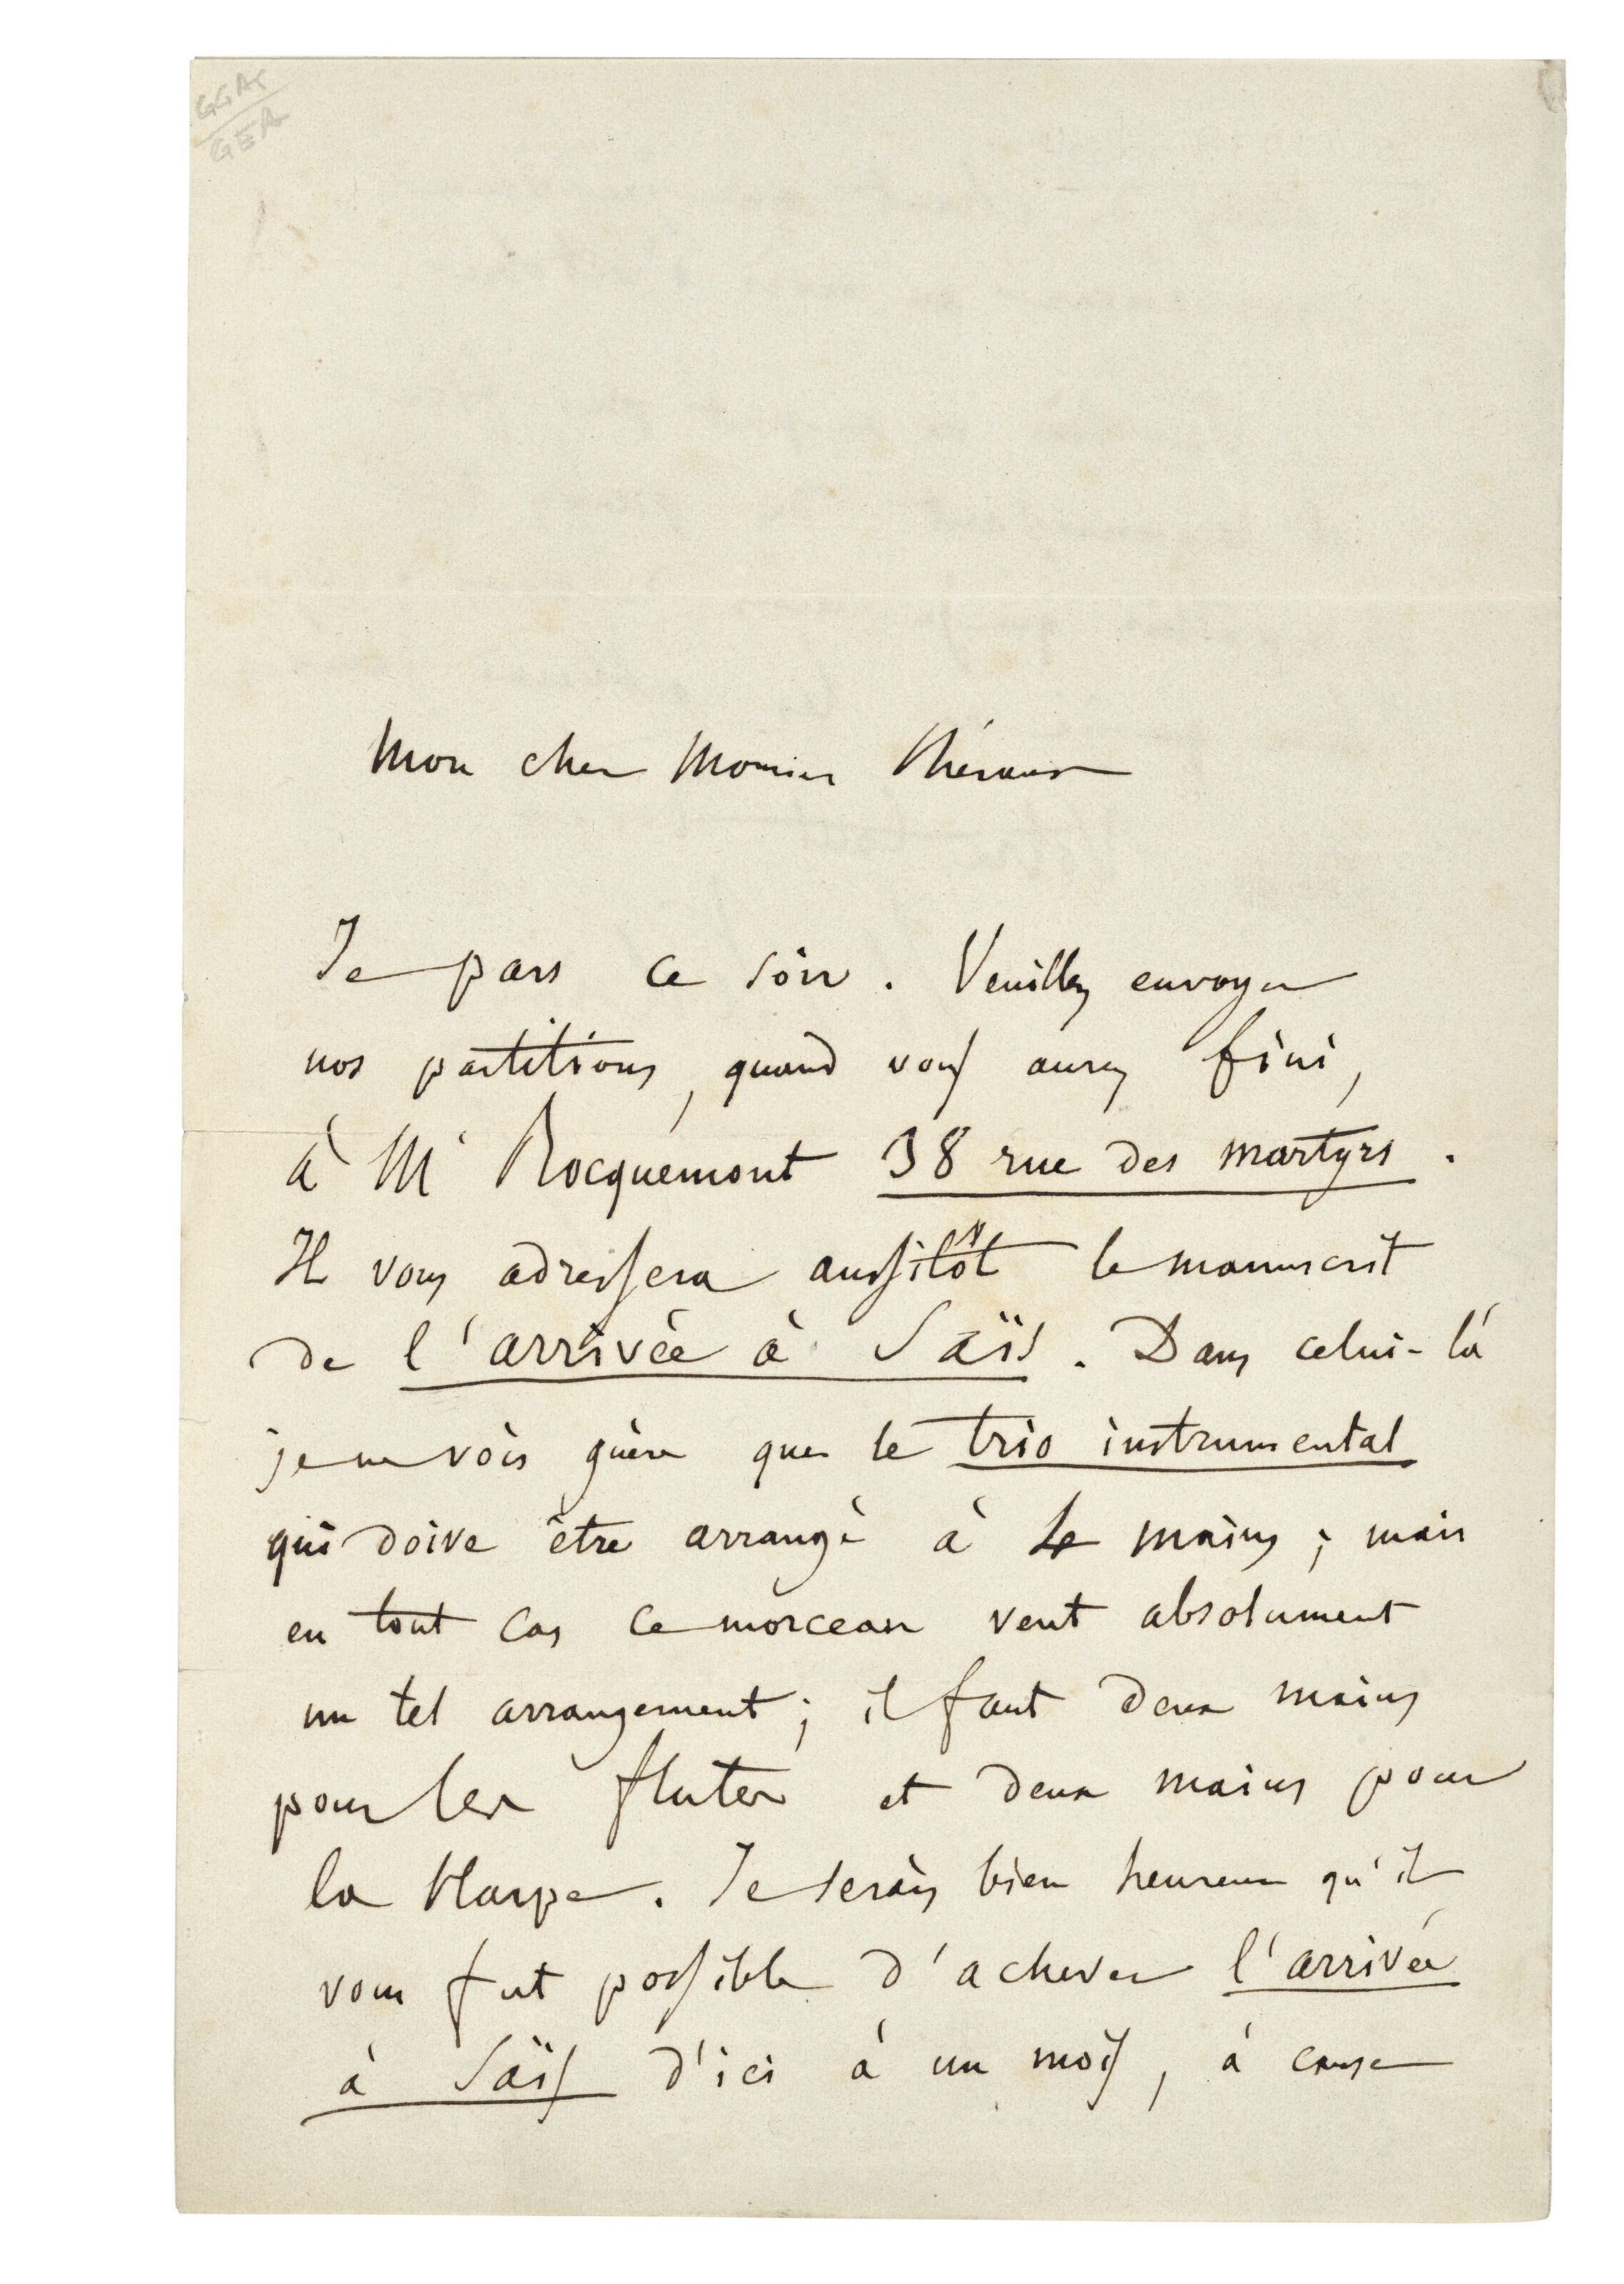 GGAS
GEA
Mon cher Monsieur Méreaux
Je pars ce soir. Veuillez envoyer
nos partitions, quand vous aurez fini,
à Mr Rocquemont 38 rue des martyrs.
Il vous adressera aussitôt le manuscrit
de l'arrivée à Saïs. Dans celui-là
je ne vois guère que le trio instrumental
qui doive être arrangé à 4 mains; mais
en tout cas ce morceau veut absolument
un tel arrangement; il faut deux mains
pour les flutes et deux mains pour
la Harpe. Je serais bien heureux qu'il
vous fut possible d'achever l'arrivée
à Saïs d'ici à un mois, à cause